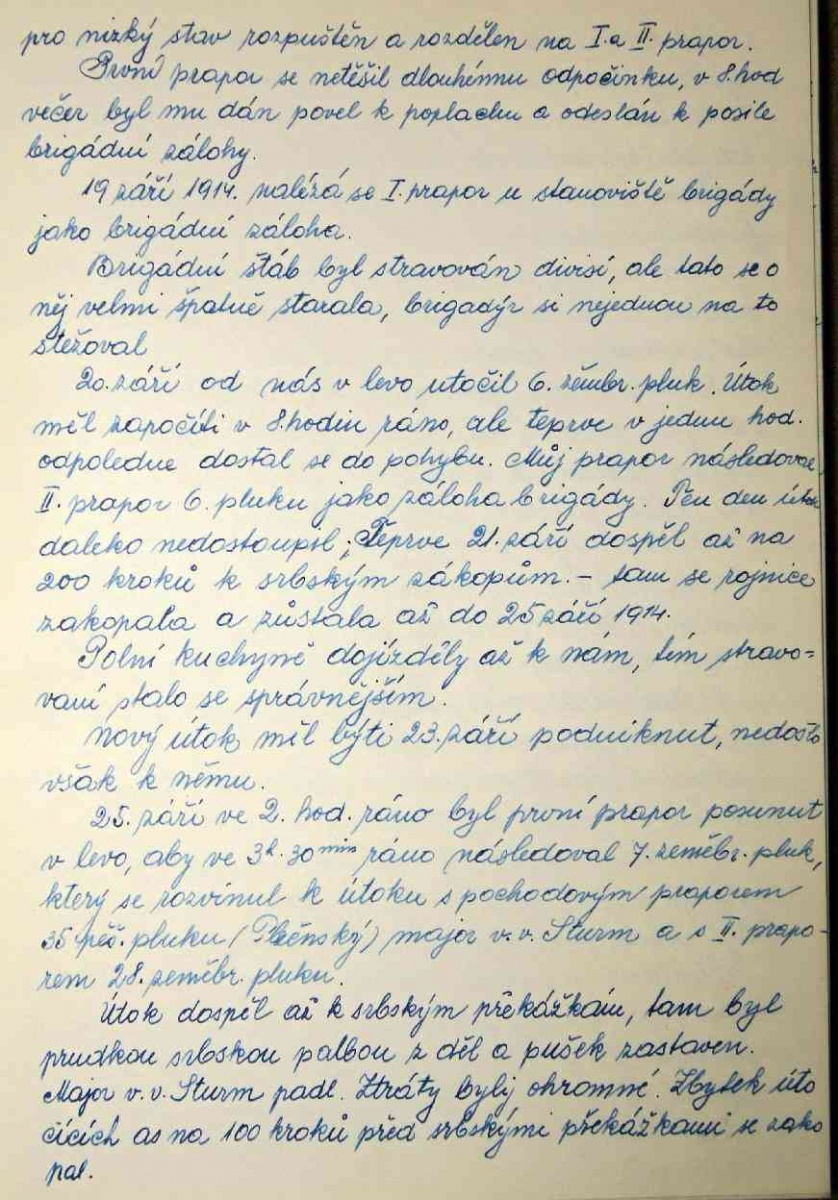 pro nizký stav rozpuštěn a rozdělen na I. a II. prapor.
První prapor se netěšil dlouhému odpočinku, v 8. hod
večer byl mu dán povel k poplachu a odeslán k posile
brigádní zálohy.
19 září 1914. nalézá se I. prapor u stanoviště brigády
jako brigádní záloha.
Brigádní štáb byl stravován divisí, ale tato se o
něj velmi špatně starala, brigadýr si nejednou na to
stěžoval
20. září od nás v levo utočil 6. zěmbr. pluk. Útok
měl započíti v 8. hodin ráno, ale teprve v jednu hod.
odpoledne dostal se do pohybu. Můj prapor následoval
II. prapor 6. pluku jako záloha brigády. Ten den útok
daleko nedostoupil; Teprve 21. září dospěl až na
200 kroků k srbským zákopům. – tam se rojnice
zakopala a zůstala až do 25 září 1914.
Polní kuchyně dojížděly až k nám, tím stravo=
vaní stalo se správnějším.
Nový útok měl býti 23. září podniknut, nedošlo
však k němu.
25. září ve 2. hod. ráno byl první prapor posunut
v levo, aby ve 3h. 30 min ráno následoval 7. zeměbr. pluk,
který se rozvinul k útoku s pochodovým praporem
35 pěš. pluku (Plzěnský) major v. v. Sturm a s II. prapo-
rem 28. zeměbr. pluku.
Útok dospěl až k srbským překážkám, tam byl
prudkou srbskou palbou z děl a pušek zastaven.
Major v. v. Sturm padl. Ztráty byly ohromné. Zbytek úto
čících as na 100 kroků před srbskými překážkami se zako
pal.